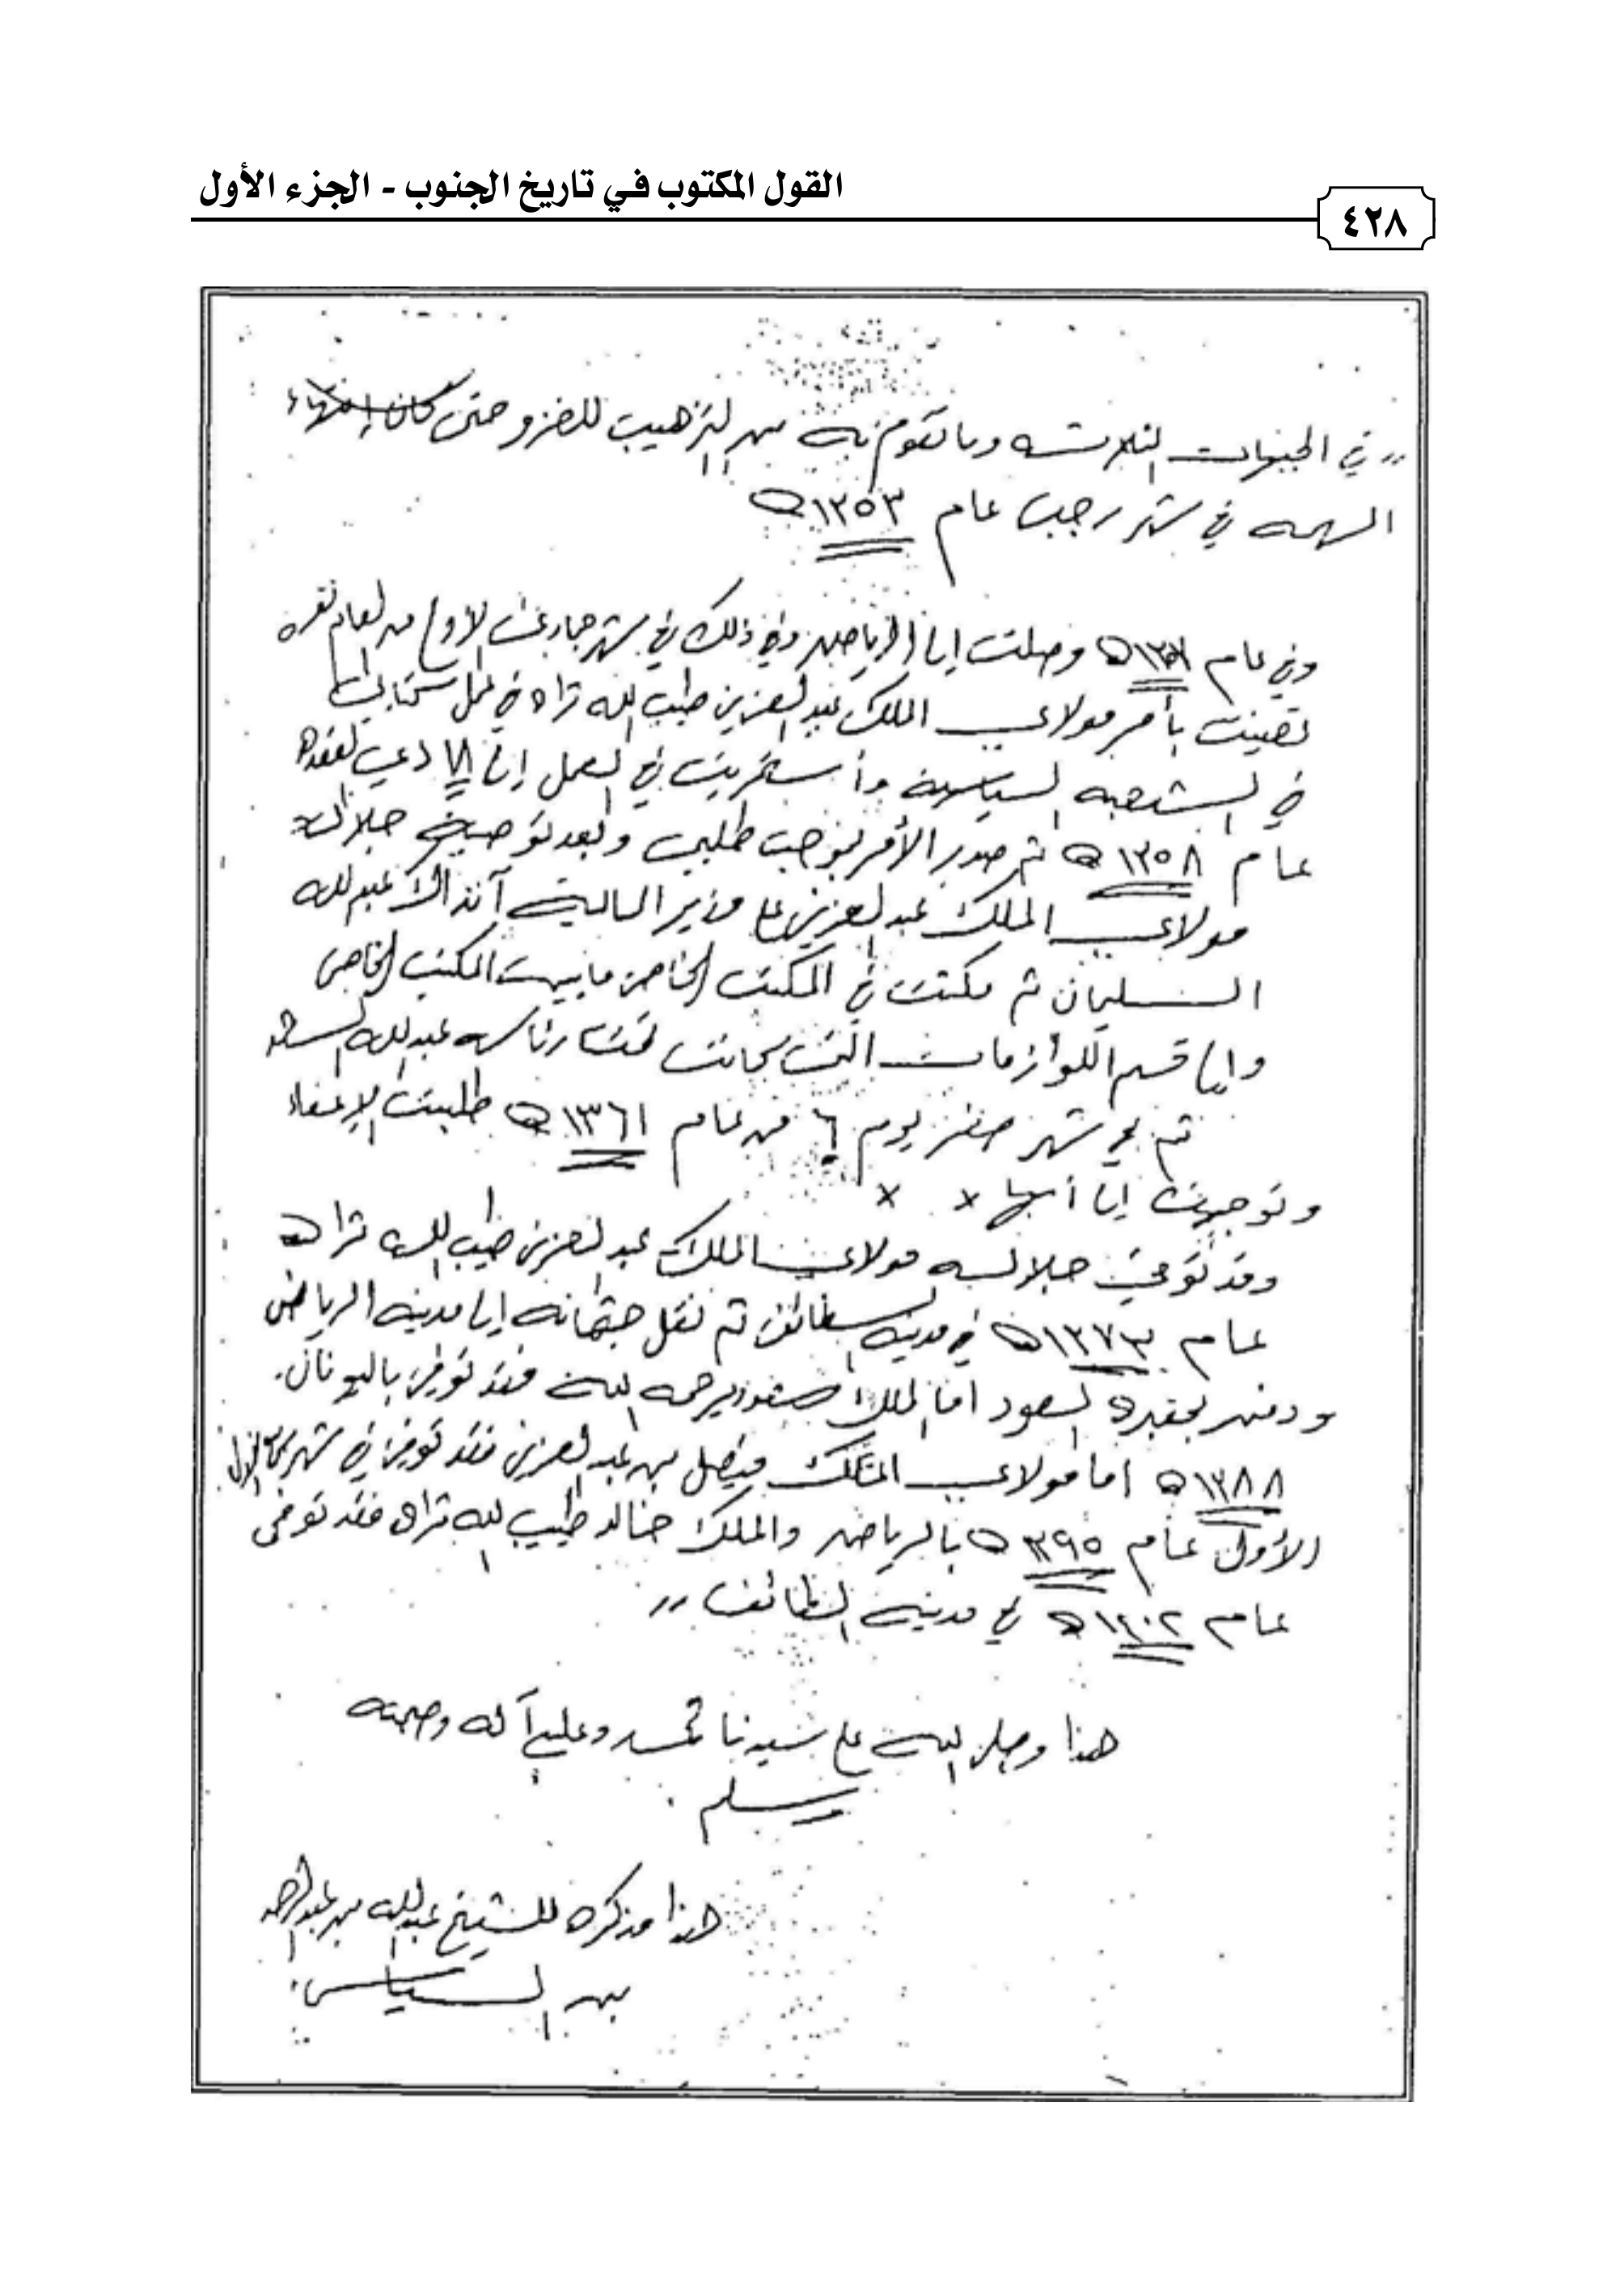 القول المكتوب في تاريخ الجنوب - الجزء الأول
٤٢٨
في الجبهات الثلاثه وما تقوم به من الترهيب للغزو حتى كان إنتهاء
المهمه في شهر رجب عام ١٣٥٣ه
وفي عام وصلت إلى الرياض وفي ذلك في شهر جماد الأول من العام نفسه
تعينت بأمر مولاي الملك عبد العزيز طيب الله ثراه في عمل كتابي
في الشعبه السياسية وأستمريت في العمل إلى
عام ١٣٥٨ه ثم صدر الأمر بموجب طلبي وبعد توصية جلالة
مولاي الملك عبد العزيز على وزير المالية آنذاك عبدالله
السليمان ثم مكثت في المكتب الخاص ما بين المكتب الخاص
وإلى قسم اللوازمات التي كانت تحت رئاسه عبدالله
ثم في شهر صفر يوم ٦ من عام ١٣٦١ه طلبت الإعفاء
وتوجهت إلى أبها × ×
وقد توفي جلالة مولاي الملك عبد العزيز طيب الله ثراه
عام ١٣٧٣ه في مدينة الطائف ثم نقل جثمانه إلى مدينة الرياض
ودفن بمقبرة السعود أما الملك سعود يرحمه الله فقد توفي باليونان.
١٣٨٨ه أما مولاي الملك فيصل بن عبد العزيز فقد توفي في شهر ربيع الأول
الأول عام ١٣٩٥ه بالرياض والملك خالد طيب الله ثراه فقد توفي
عام ١٤٠٢ه في مدينة الطائف ،،
هذا وصلى الله على سيدنا محمد وعلى آله وصحبه
وسلم.
هذا مذكره للشيخ عبدالله بن عبدالرحمن
بن الياسي.